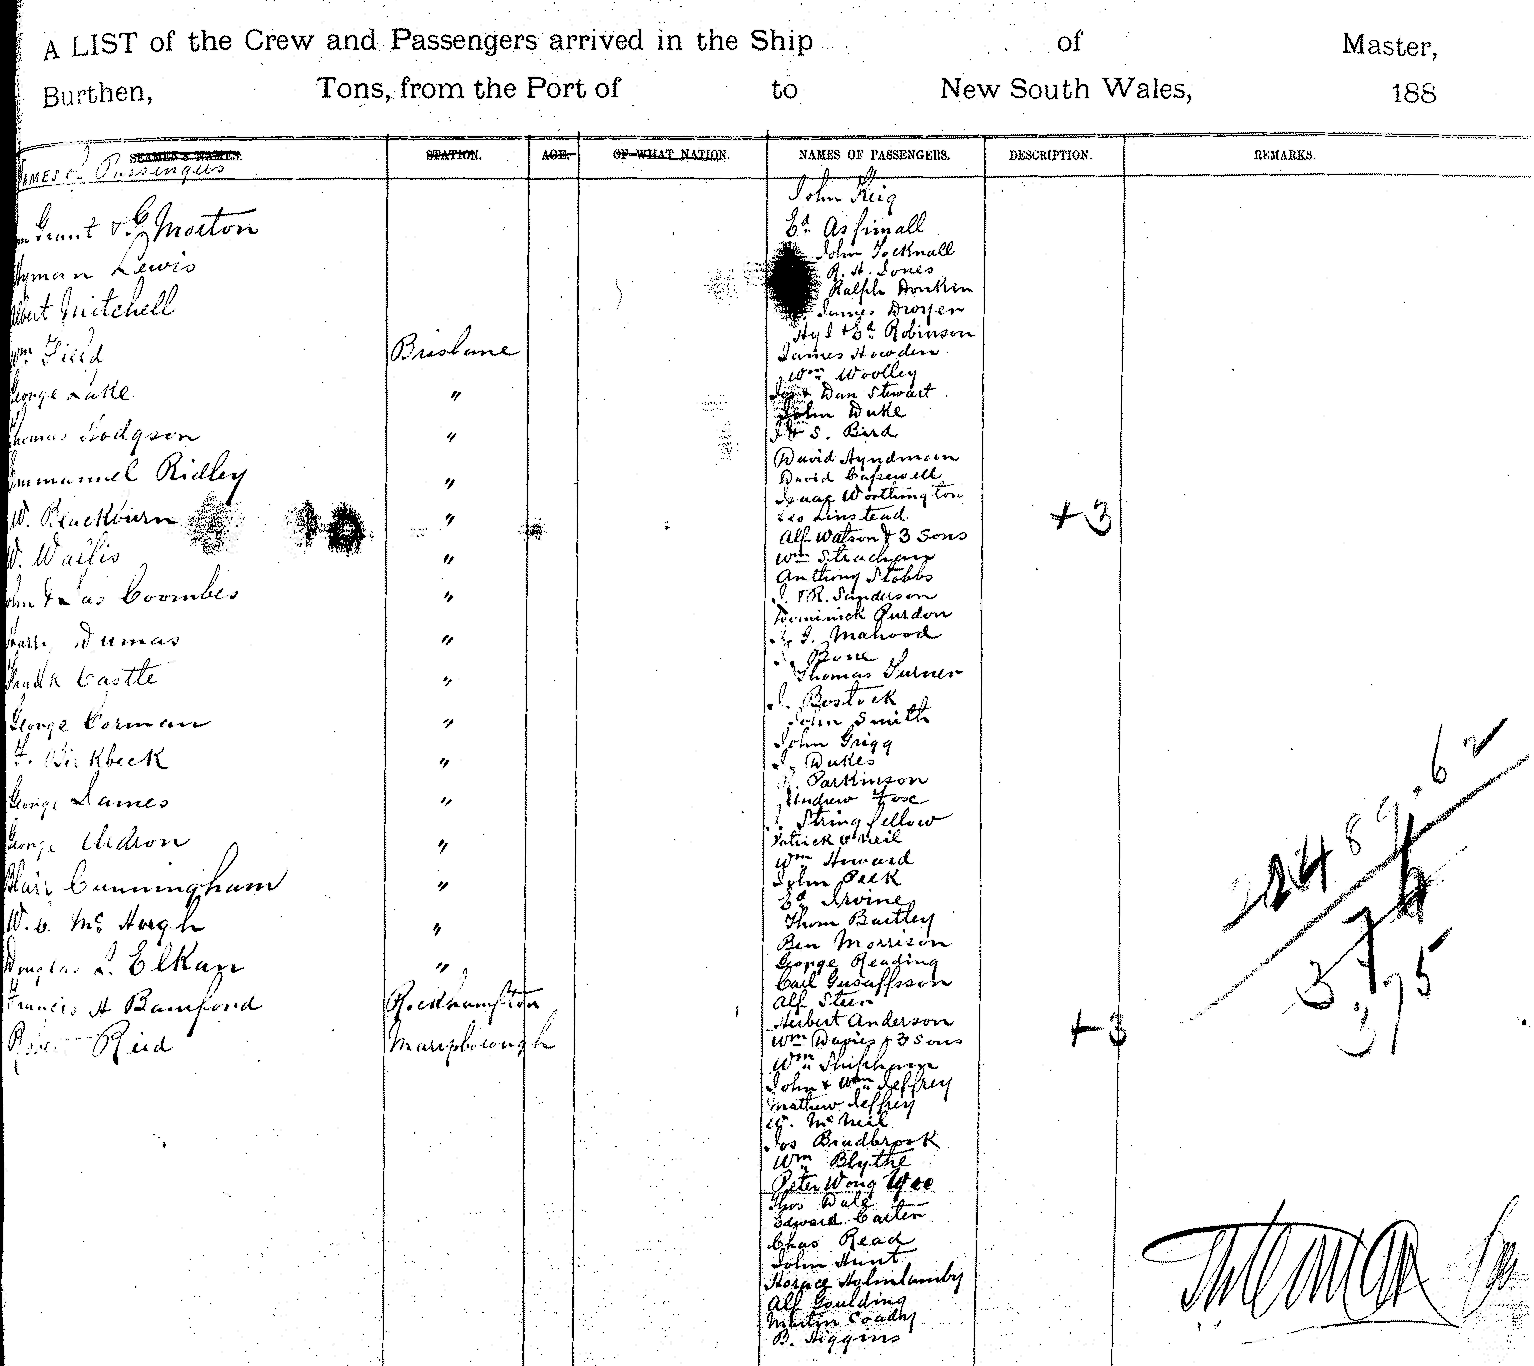 A LIST of the Crew and Passengers arrived in the Ship of Master,
Burthen, Tons, from the Port of to New South Wales, 188
SEAMEN'S NAMES. STATION. AGE. OF WHAT NATION. NAMES OF PASSENGERS. DESCRIPTION. REMARKS.
Passengers
Grant & G Morton
Lewis
Mitchell
Wm Field Brisbane
George Lake "
Thomas Hodgson "
Emmanuel Ridley "
W. Blackburn "
W. Wallis "
John & Jas Coombes "
Dumas "
Frank Castle "
George Corman "
F. Birkbeck "
George James "
George Ardron "
Cunningham "
W. C. Mc "
Douglas L. Elkan "
Francis A Bamford Rockhampton
Robert Reid Maryborough
John Keig
Ed. Aspinall
John Tocknall
R. H. Jones
Ralph Donkin
James
& Ed. Robinson
James Howden
Wm Woolley
Jos & Dan Stewart
John Duke
J & S. Bird
David Hyndman
David
Isaac Worthington
Geo Linstead
Alf Watson & 3 Sons +3
Wm Strachan
Anthony Stobbs
J. & R. Sanderson
Dominick Purdon
J. Mahood
Bone
Thomas Turner
J. Bostock
John Smith
John Grigg
J. Dukes
Parkinson
Andrew
Stringfellow
Patrick O'Neil
Wm Howard
John Peck
Ed. Irvine
Thom Bartley
Ben Morrison
George Reading
Carl Gusaffsson
Alf Stein
Herbert Anderson
Wm Davies & 3 Sons +3
Wm Shipham
John & Wm Jeffrey
Mathew Jeffrey
Mc Neil
Jos Bradbrook
Wm Blythe
Peter Wong Yee
Thos Dale
Edward Carter
Chas Read
John Hunt
Horace
Alf Goulding
Martin Coady
B. Higgins